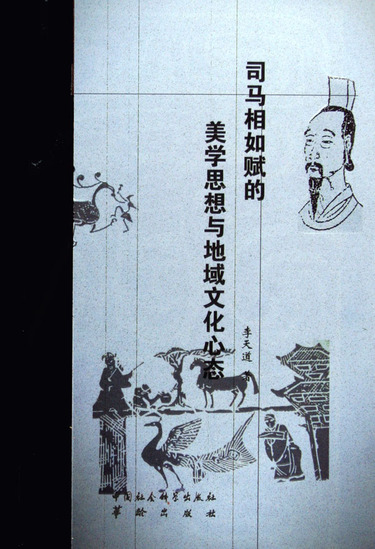 司马相如赋的
美学思想与地域文化心态
李天道 著
中国社会科学出版社
华龄出版社